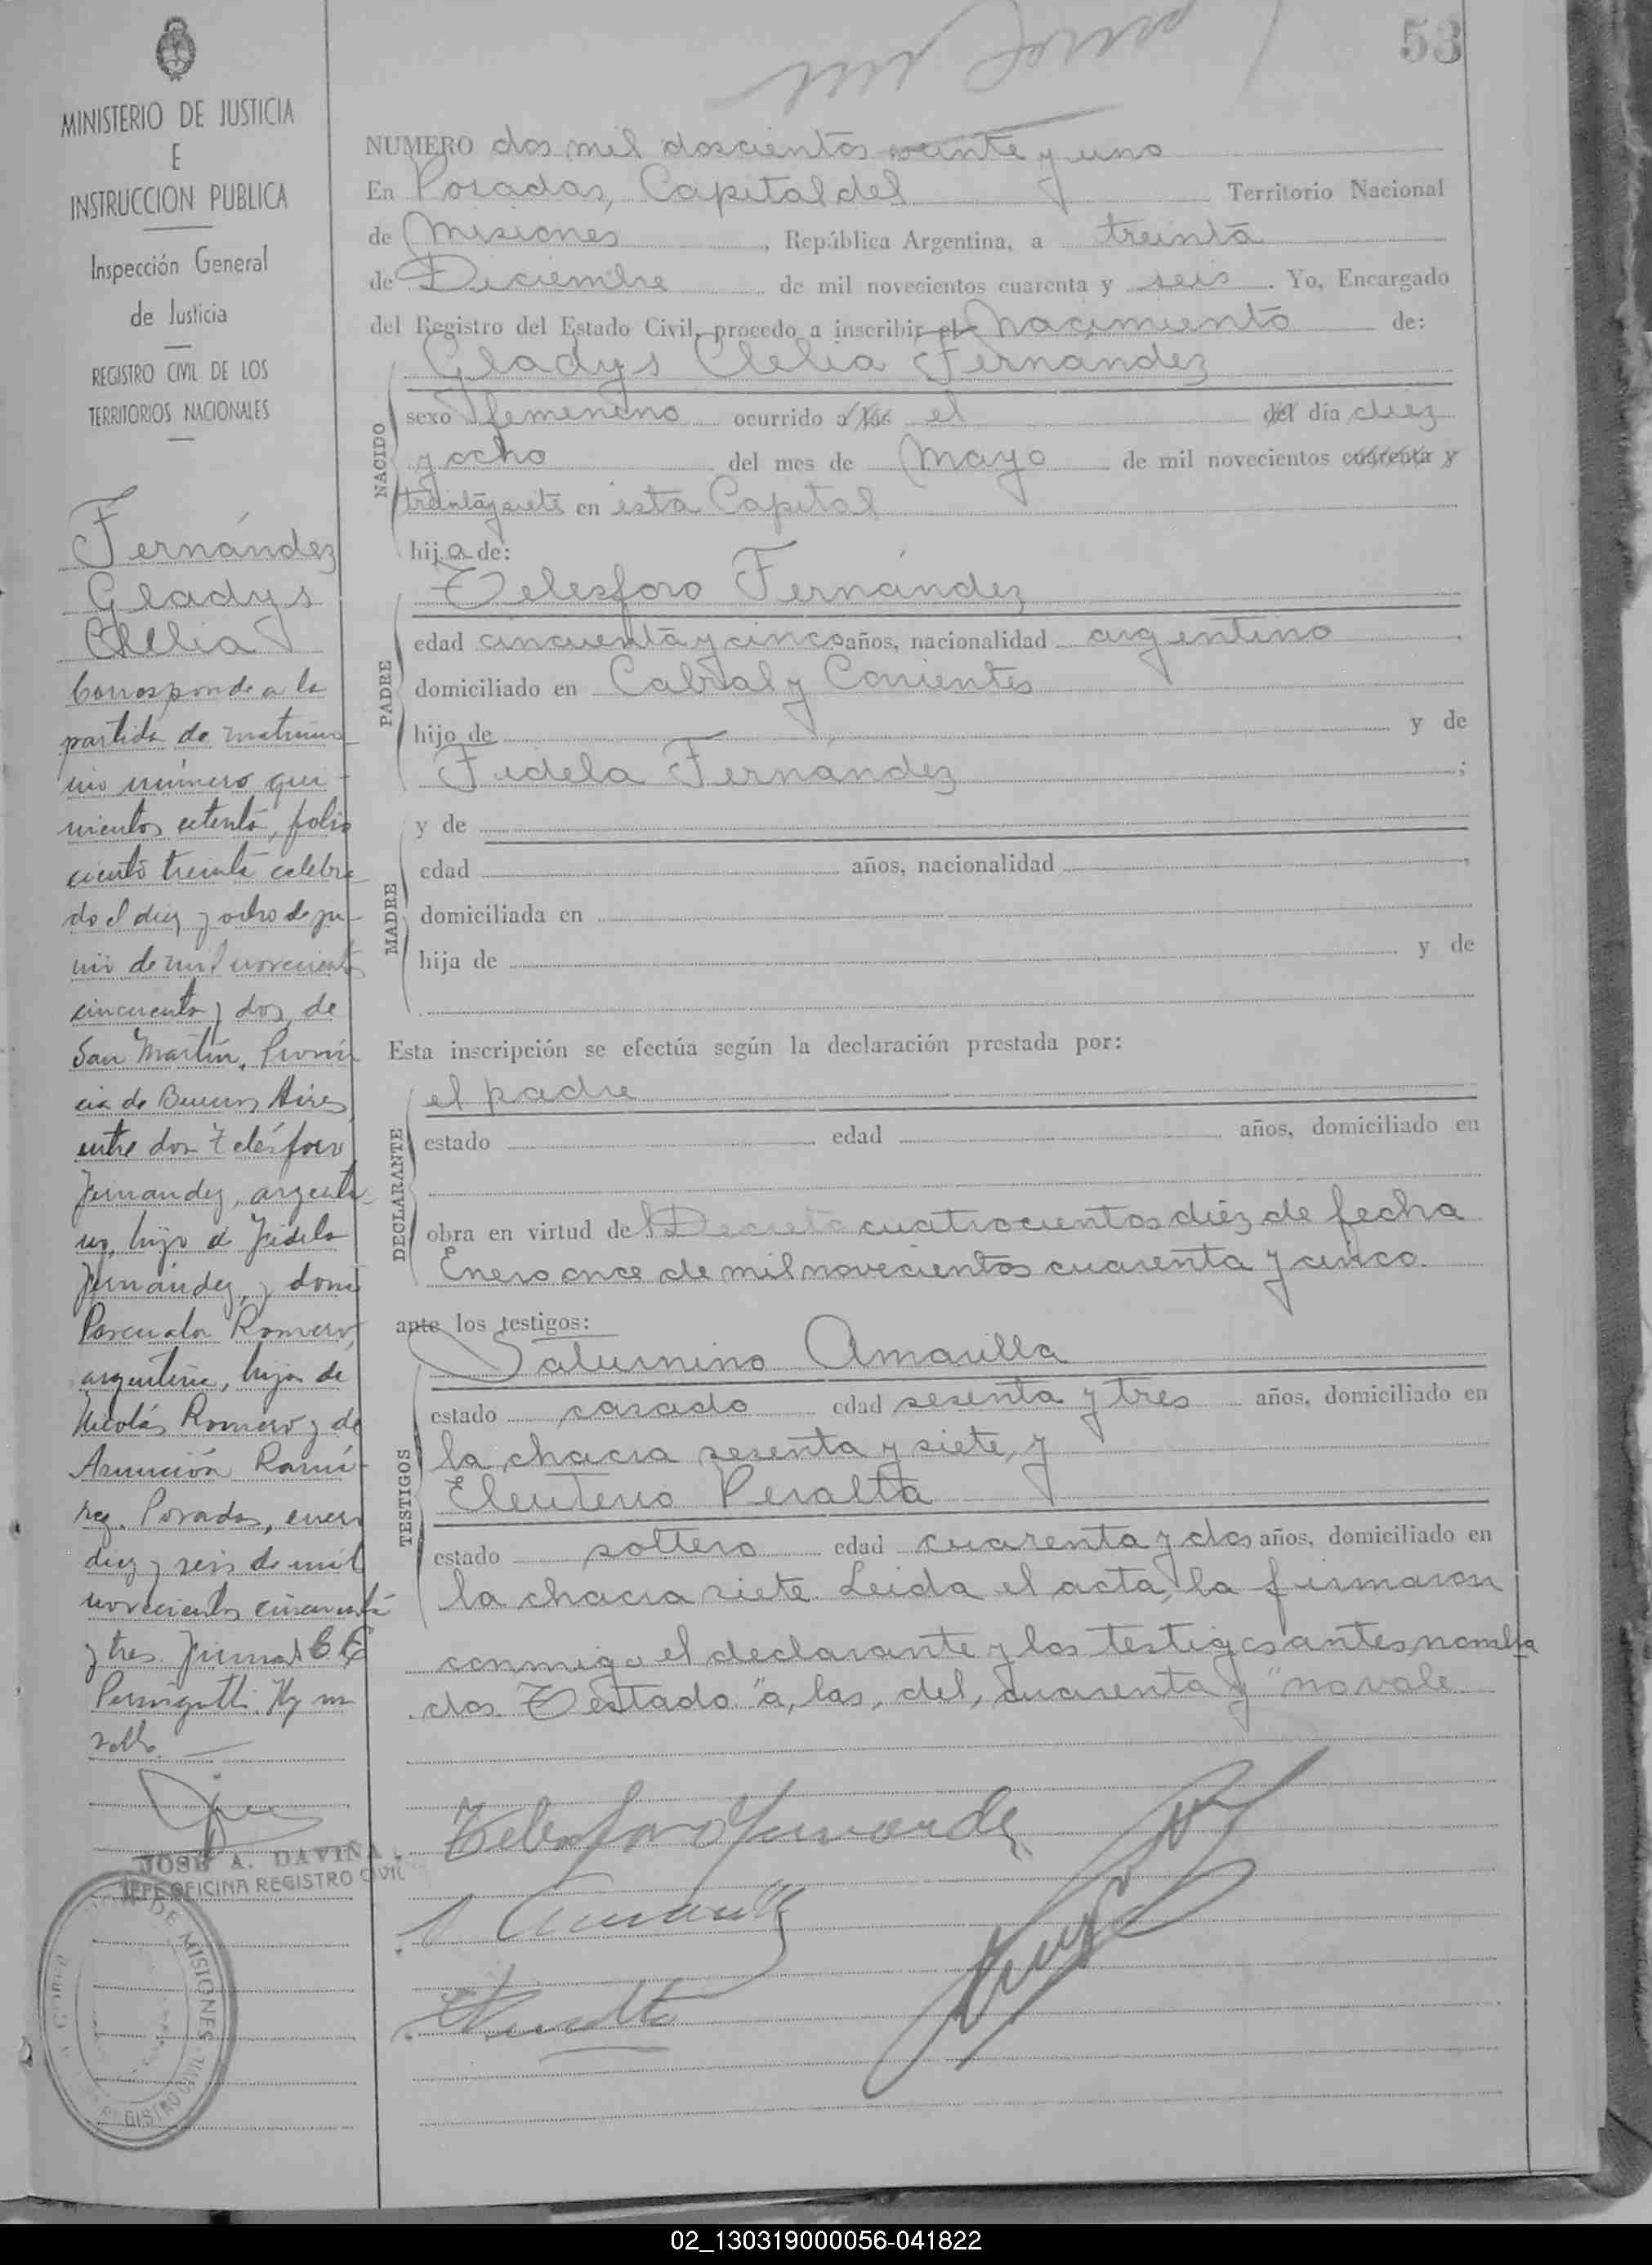 53
MINISTERIO DE JUSTICIA
E
INSTRUCCION PUBLICA
Inspección General
de Justicia
REGISTRO CIVIL DE LOS
TERRITORIOS NACIONALES
Fernández
Gladys
Clelia
Corresponde a la
partida de matrimo
nio número qui-
nientos setenta, folio
ciento treinta celebra
do el diez y ocho de ju-
nio de mil novecientos
cincuenta y dos, de
San Martín, Provin
cia de Buenos Aires,
entre don Telésforo
Fernandez, argenti-
no, hijo de Fidela
Fernández, y doña
Pascuala Romero,
argentina, hija de
Nicolás Romero y de
Asunción Ramí-
rez. Posadas, enero
diez y seis de mil
novecientos cincuenta
y tres. Firmado
Hay un
sello.
JOSE A. DAVIÑA
JEFE OFICINA REGISTRO CIVIL
DE MISIONES
REGISTRO CIVIL
NUMERO dos mil doscientos veinte y uno
En Posadas, Capital del Territorio Nacional
de Misiones, República Argentina, a treinta
de Diciembre de mil novecientos cuarenta y seis. Yo, Encargado
del Registro del Estado Civil, procedo a inscribir el nacimiento de:
Gladys Clelia Fernández
NACIDO
sexo femenino ocurrido a las el del día diez
y ocho del mes de Mayo de mil novecientos cuarenta y
treinta y siete en esta Capital
hija de:
PADRE
Telesforo Fernández
edad cincuenta y cinco años, nacionalidad argentino
domiciliado en Cabral y Corrientes
hijo de y de
Fidela Fernández;
MADRE
y de
edad años, nacionalidad,
domiciliada en
hija de y de
Esta inscripción se efectúa según la declaración prestada por:
DECLARANTE
el padre
estado edad años, domiciliado en
obra en virtud del Decreto cuatrocientos diéz de fecha
Enero once de mil novecientos cuarenta y cinco.
ante los testigos:
TESTIGOS
Saturnino Amarilla
estado casado edad sesenta y tres años, domiciliado en
la chacra sesenta y siete, y
Eleuterio Peralta
estado soltero edad cuarenta y dos años, domiciliado en
la chacra siete. Leida el acta, la firmaron
conmigo el declarante y los testigos antes nombra
dos. Testado "a, las, del, cuarenta y" no vale
Telesforo Fernandez
Amarilla
EPeralta
02_130319000056-041822